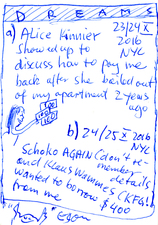 DREAMS
a) ALice Kinnier 23/24 X 2016 NYC
Showed up to
discuss how to pay me
back after she bailed out
of my apartment 2 years
ago
b) 24/25 X 2016
NYC
Schoko AGAIN (don't re-
member details)
and Klaus Wammes (KFG!)
wanted to borrow $400
from me